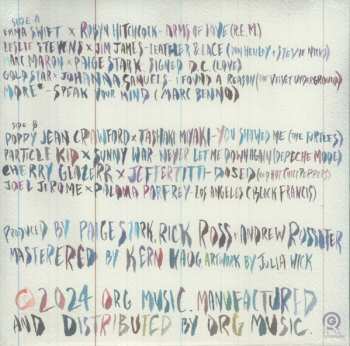 SIDE A
EMMA SWIFT x ROBYN HITCHCOCK - ARMS OF LOVE (R.E.M.)
LESLIE STEVENS x JIM JAMES - LEATHER & LACE (DON HENLEY + STEVIE NICKS)
MARC MARON x PAIGE STARK - SIGNED D.C. (LOVE)
GOLD STAR x JOHANNA SAMUELS - I FOUND A REASON (THE VELVET UNDERGROUND)
MORE* - SPEAK YOUR MIND (MARC BENNO)
SIDE B
POPPY JEAN CRAWFORD x TASHAKI MIYAKI - YOU SHOWED ME (THE TURTLES)
PARTICLE KID x SUNNY WAR - NEVER LET ME DOWN AGAIN (DEPECHE MODE)
CHERRY GLAZERR x JEFFERTITTI - DOSED (RED HOT CHILI PEPPERS)
JOEL JEROME x PALOMA PARFREY - LOS ANGELES (BLACK FRANCIS)
PRODUCED BY PAIGE STARK, RICK ROSS + ANDREW ROSSITER
MASTERERED BY KERN HAUG ARTWORK BY JULIA WICK
©2024 ORG MUSIC. MANUFACTURED
AND DISTRIBUTED BY ORG MUSIC.